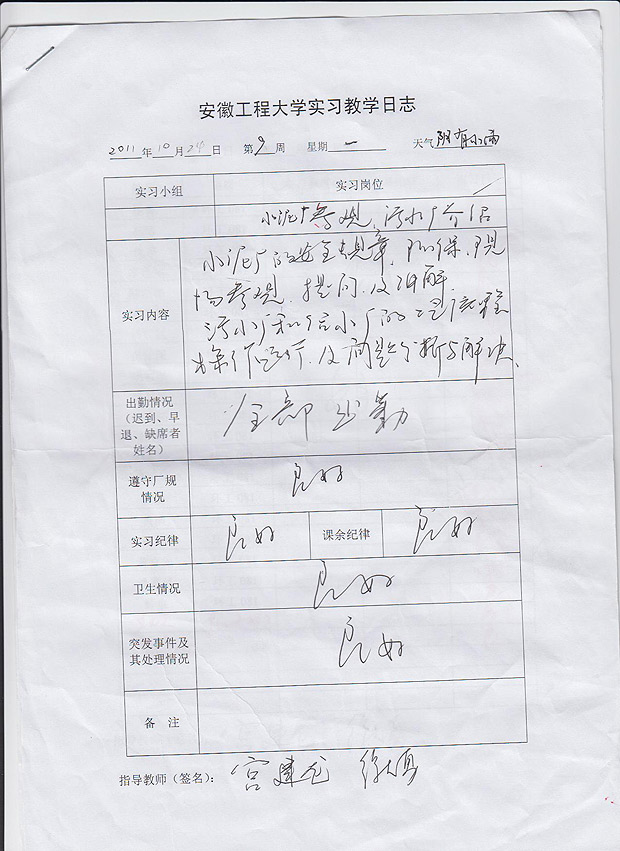 安徽工程大学实习教学日志
2011年10月24日 第9周 星期一 天气 阴有小雨
实习小组 实习岗位
水泥厂参观、污水厂介绍
实习内容
水泥厂的安全规章、环保、现
场参观、提问、及讲解.
污水厂和给水厂的工程流程
操作运行、及问题分析与解决、
出勤情况
(迟到、早
退、缺席者
姓名)
全部出勤
遵守厂规
情况
良好
实习纪律 良好 课余纪律 良好
卫生情况 良好
突发事件及
其处理情况
良好
备 注
指导教师(签名): 宫建龙 徐